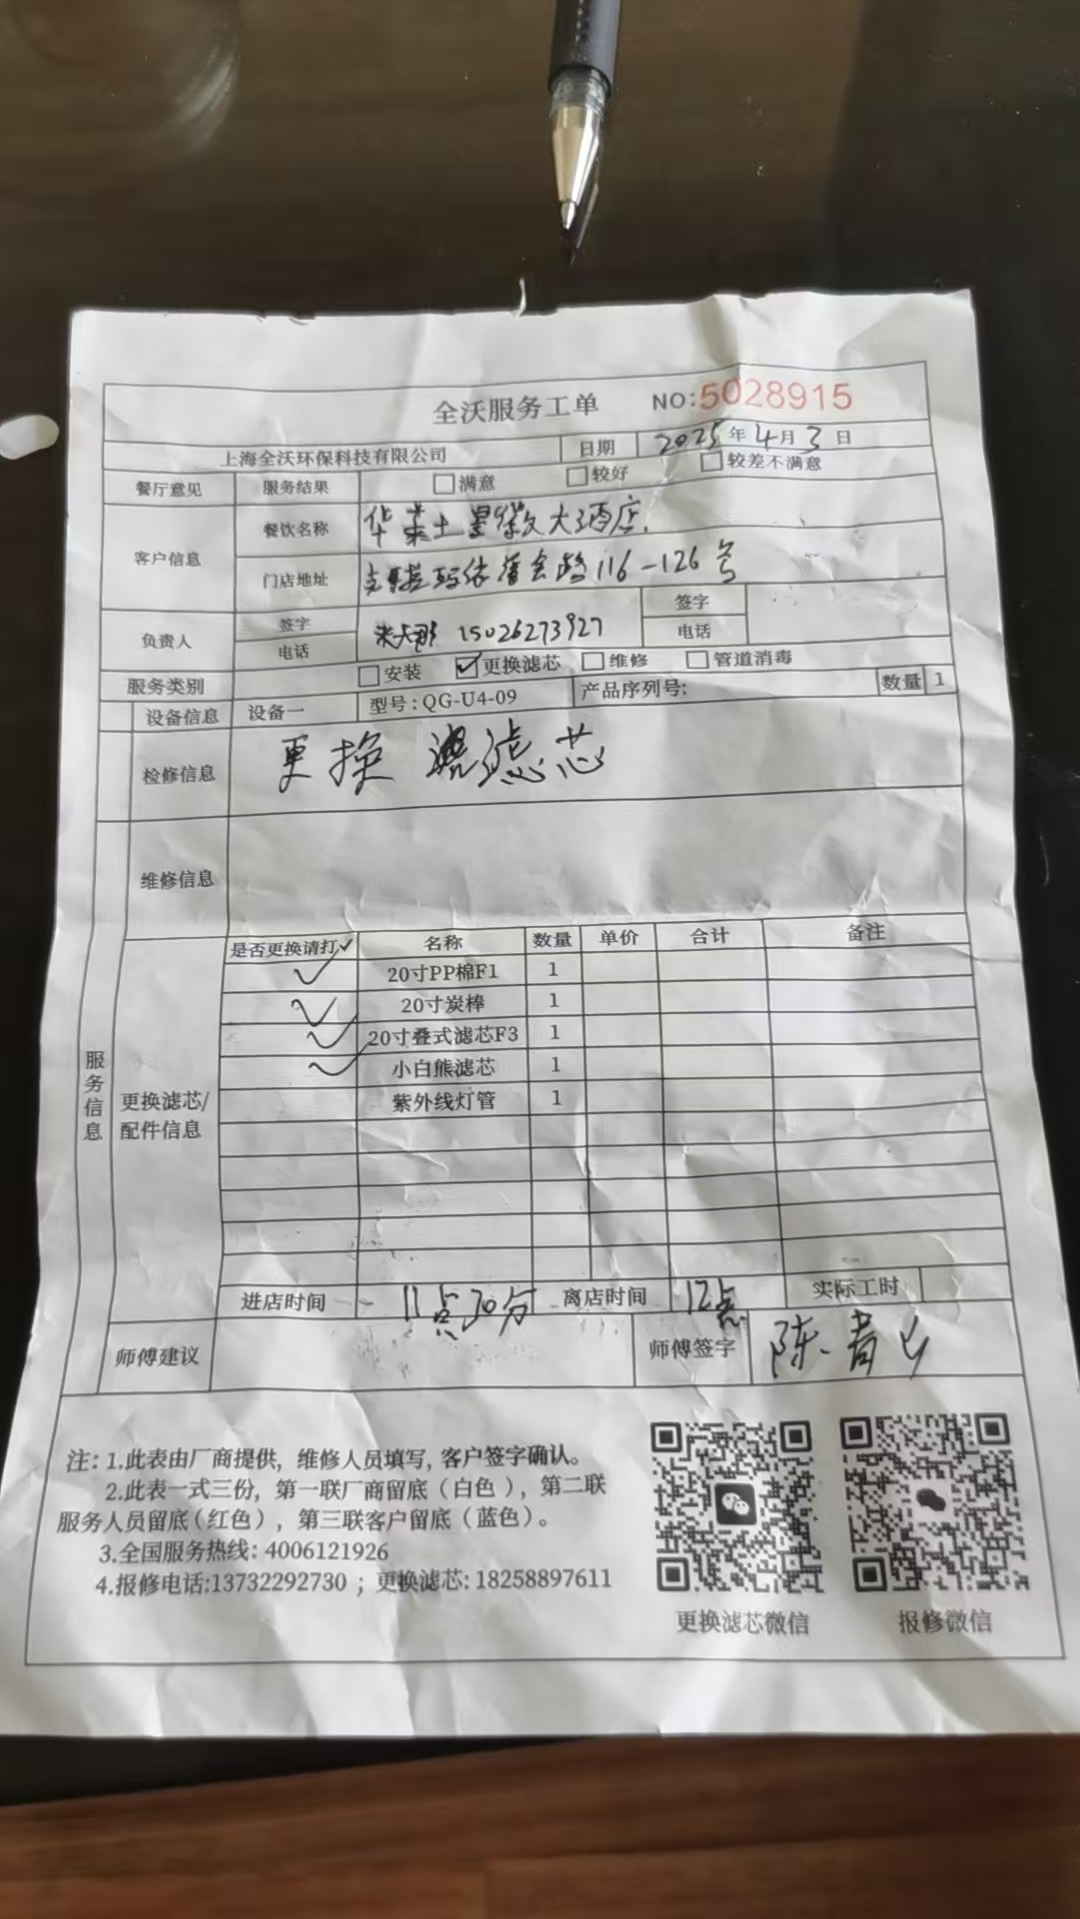 全沃服务工单 NO:5028915
上海全沃环保科技有限公司 日期 2025年4月3日
餐厅意见 服务结果 满意 较好 较差不满意
客户信息 餐饮名称 华莱士 大酒店
门店地址 路116-126号
负责人 签字 电话 15026273927 签字 电话
服务类别 安装 ✓更换滤芯 维修 管道消毒
设备信息 设备一 型号:QG-U4-09 产品序列号: 数量 1
检修信息 更换 滤芯
维修信息
服务信息
更换滤芯/配件信息
是否更换请打✓ 名称 数量 单价 合计 备注
✓ 20寸PP棉F1 1
✓ 20寸炭棒 1
✓ 20寸叠式滤芯F3 1
✓ 小白熊滤芯 1
紫外线灯管 1
进店时间 11点30分 离店时间 12点 实际工时
师傅建议 师傅签字 陈
注: 1.此表由厂商提供, 维修人员填写, 客户签字确认。
2.此表一式三份, 第一联厂商留底(白色), 第二联
服务人员留底(红色), 第三联客户留底(蓝色)。
3.全国服务热线: 4006121926
4.报修电话:13732292730 ; 更换滤芯: 18258897611
更换滤芯微信 报修微信